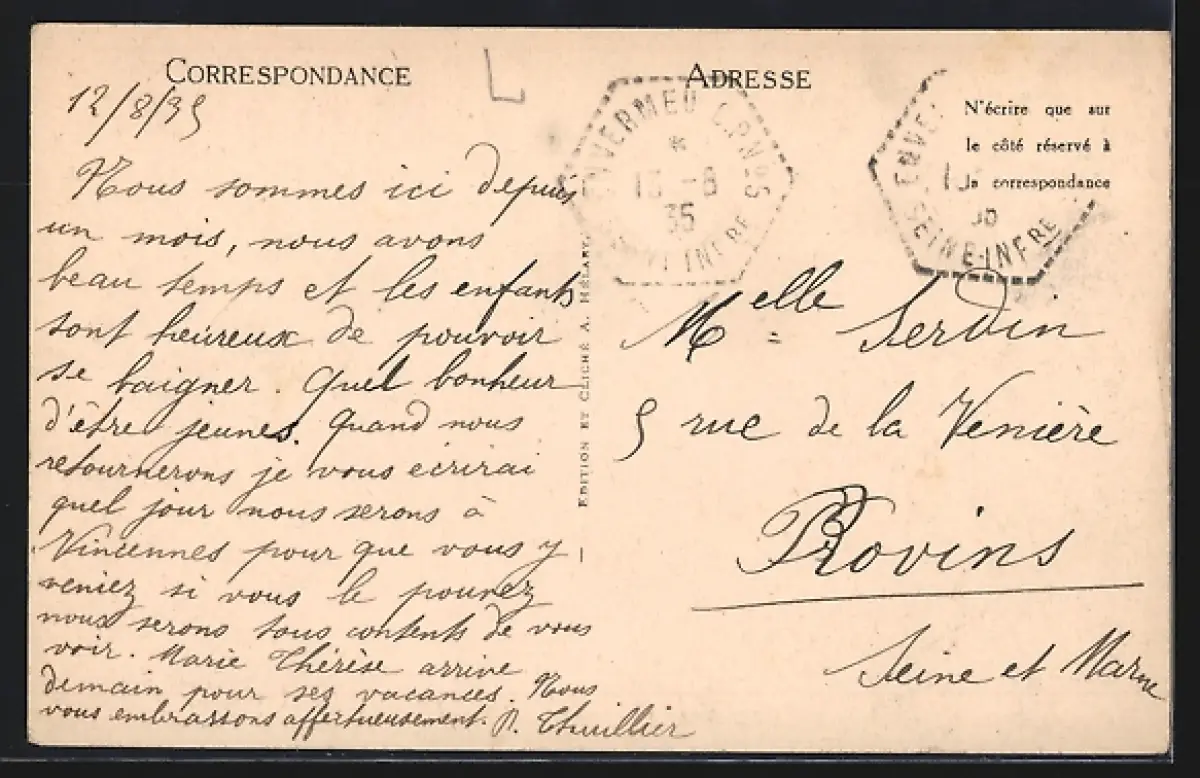 CORRESPONDANCE
12/8/35
Nous sommes ici depuis
un mois, nous avons
beau temps et les enfants
sont heureux de pouvoir
se baigner. Quel bonheur
d'être jeunes. Quand nous
retournerons je vous écrirai
quel jour nous serons à
Vincennes pour que vous y
veniez si vous le pouvez
nous serons tous contents de vous
voir. Marie Thérèse arrive
demain pour ses vacances. Nous
vous embrassons affectueusement. R. Thuillier
L
EDITION ET CLICHÉ A. HÉLARY.
ADRESSE
N'écrire que sur
le côté réservé à
la correspondance
ENVERMEU C.P. N°5
-8
35
SEINE INFRE
ENVE
35
SEINE-INFRE
Melle Serdin
5 rue de la Venière
Provins
Seine et Marne